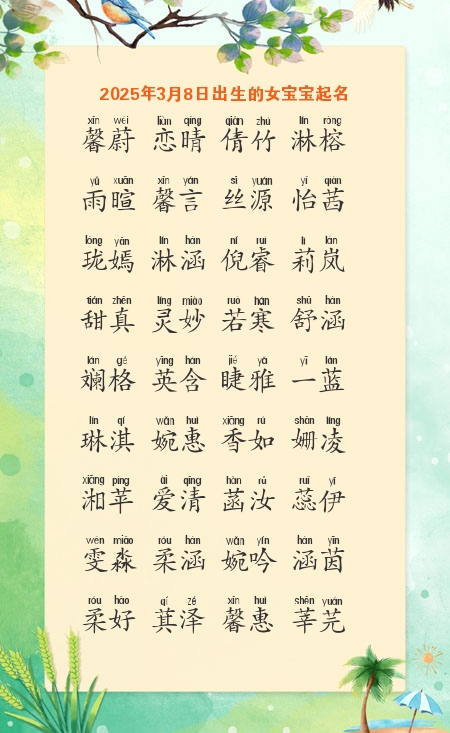 2025年3月8日出生的女宝宝起名
xīn wèi liàn qíng qiàn zhú lín róng
馨蔚 恋晴 倩竹 淋榕
yǔ xuān xīn yán sī yuán yí qiàn
雨暄 馨言 丝源 怡茜
lóng yān lín hán ní ruì lì lán
珑嫣 淋涵 倪睿 莉岚
tián zhēn líng miào ruò hán shū hán
甜真 灵妙 若寒 舒涵
lán gé yīng hán jié yǎ yī lán
斓格 英含 睫雅 一蓝
lín qí wǎn huì xiāng rú shān líng
琳淇 婉惠 香如 姗凌
xiāng píng ài qīng hàn rǔ ruǐ yī
湘苹 爱清 菡汝 蕊伊
wén miǎo róu hán wǎn yín hán yīn
雯淼 柔涵 婉吟 涵茵
róu hǎo qí zé xīn huì shēn yuán
柔好 萁泽 馨惠 莘芫